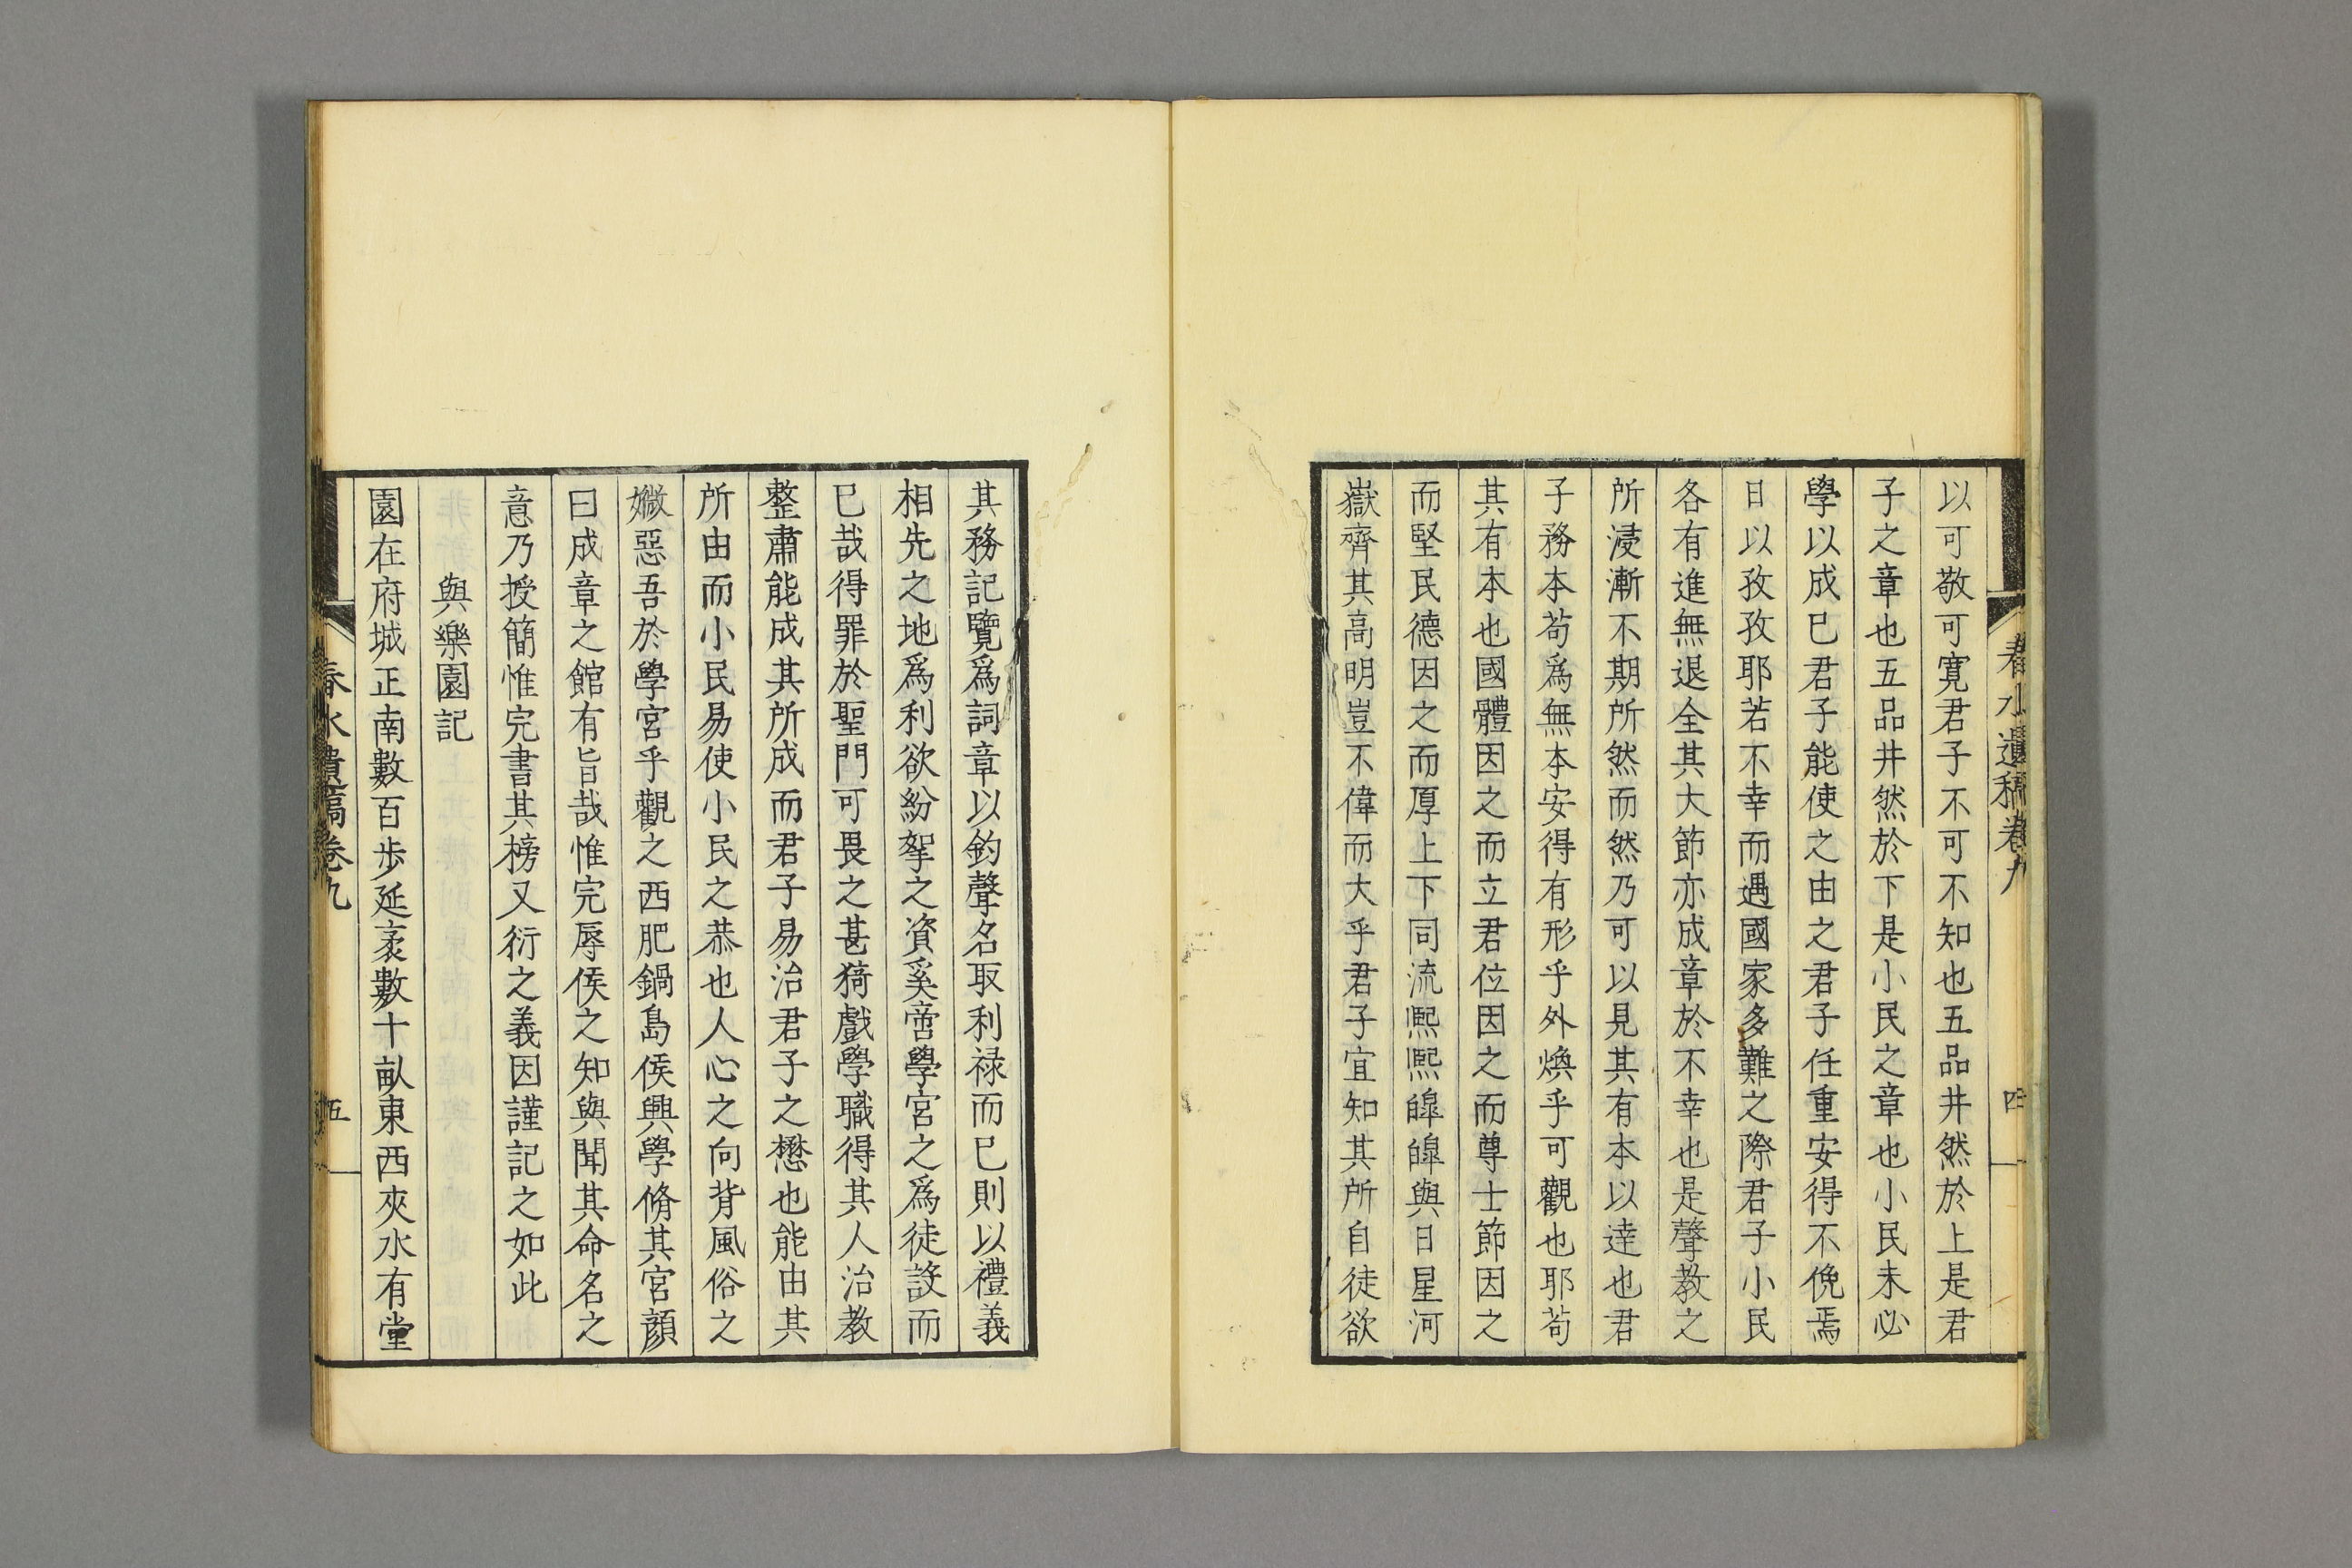 春水遺稿卷九
四
以可敬可寛君子不可不知也五品井然於上是君
子之章也五品井然於下是小民之章也小民未必
學以成已君子能使之由之君子任重安得不俛焉
日以孜孜耶若不幸而遇國家多難之際君子小民
各有進無退全其大節亦成章於不幸也是聲教之
所浸漸不期所然而然乃可以見其有本以達也君
子務本苟爲無本安得有形乎外煥乎可觀也耶苟
其有本也國體因之而立君位因之而尊士節因之
而堅民德因之而厚上下同流熈熈皡皡與日星河
嶽齊其高明豈不偉而大乎君子宜知其所自徒欲
其務記覽爲詞章以釣聲名取利禄而已則以禮義
相先之地爲利欲紛挐之資奚啻學宮之爲徒設而
已哉得罪於聖門可畏之甚猗戲學職得其人治教
整肅能成其所成而君子易治君子之懋也能由其
所由而小民易使小民之恭也人心之向背風俗之
媺惡吾於學宮乎觀之西肥鍋島侯興學脩其宮顔
曰成章之館有旨哉惟完辱侯之知與聞其命名之
意乃授簡惟完書其榜又衍之義因謹記之如此
與樂園記
園在府城正南數百歩延袤數十畝東西夾水有堂
春水遺稿卷九
五